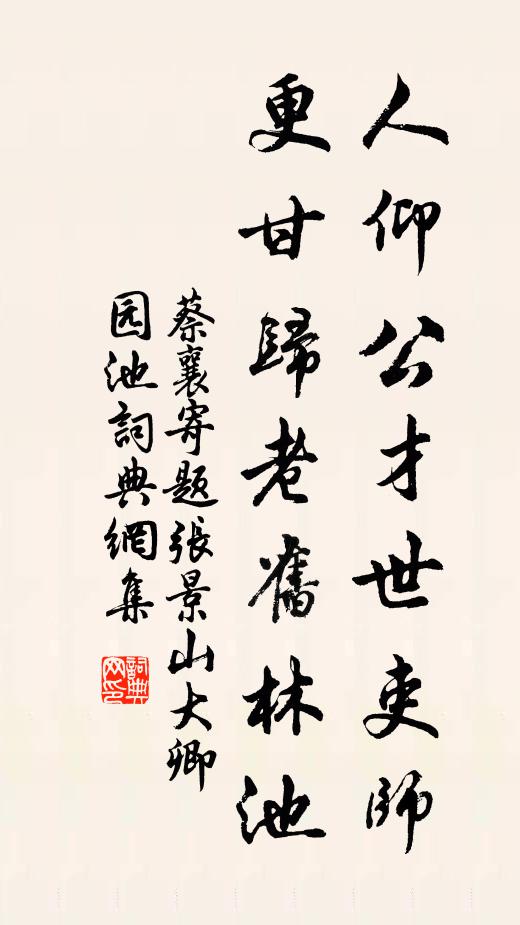 人仰公才世吏師
更甘歸老舊林池
蔡襄寄題張景山大卿
园池詞典網集
詞典网印